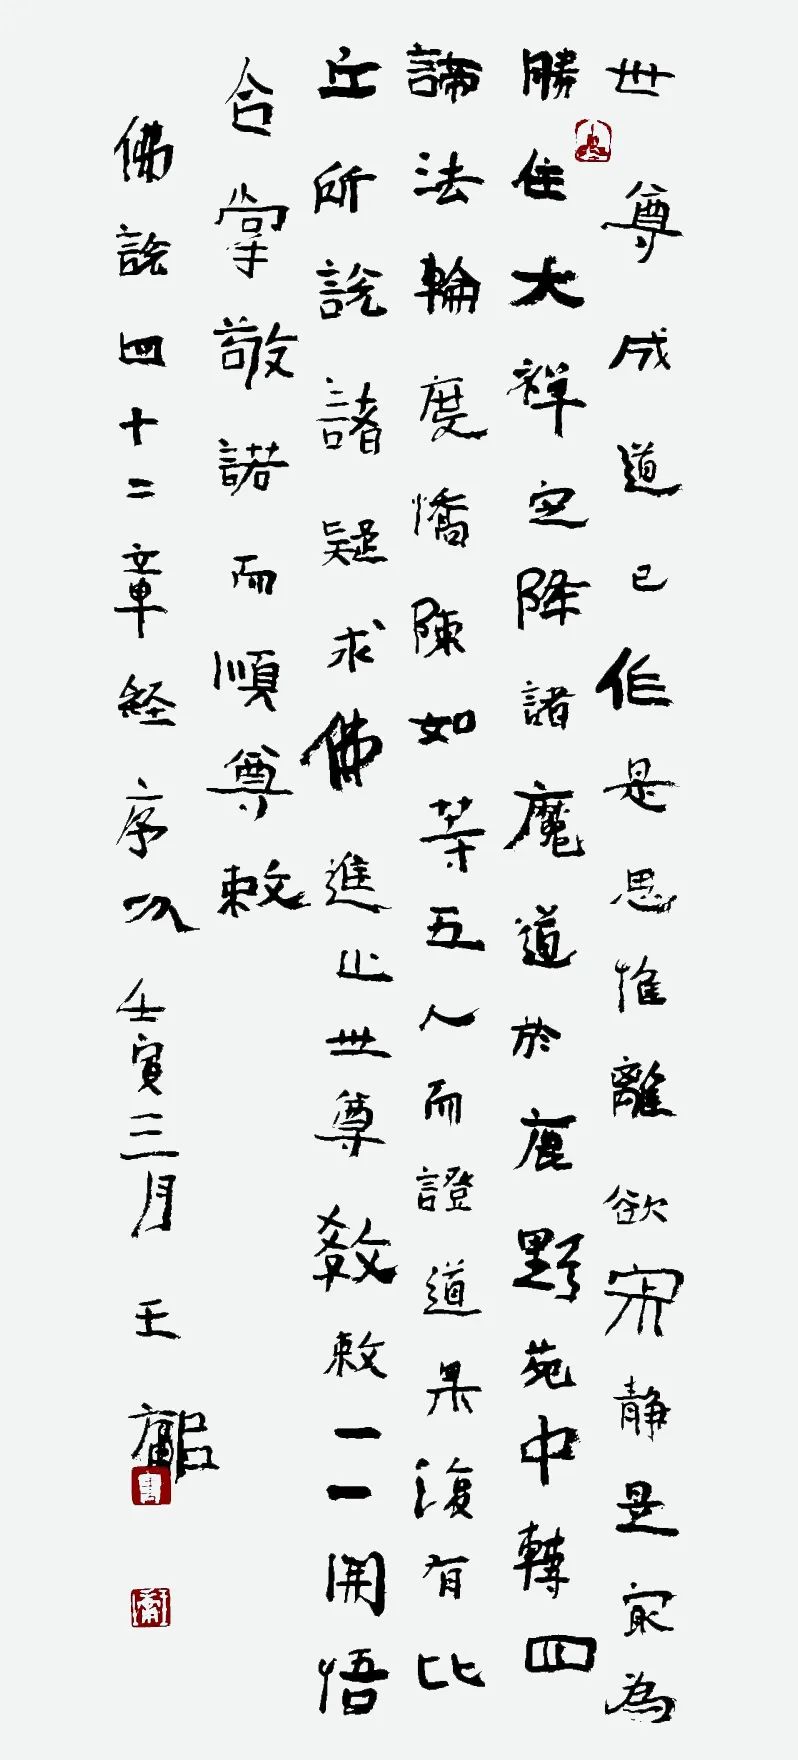 世尊成道已作是思惟離欲寂静是最為
勝住大禪定降諸魔道於鹿野苑中轉四
諦法輪度憍陳如等五人而證道果復有比
丘所說諸疑求佛進止世尊教敕一一開悟
合掌敬諾而順尊敕
佛說四十二章經序 壬寅三月 王